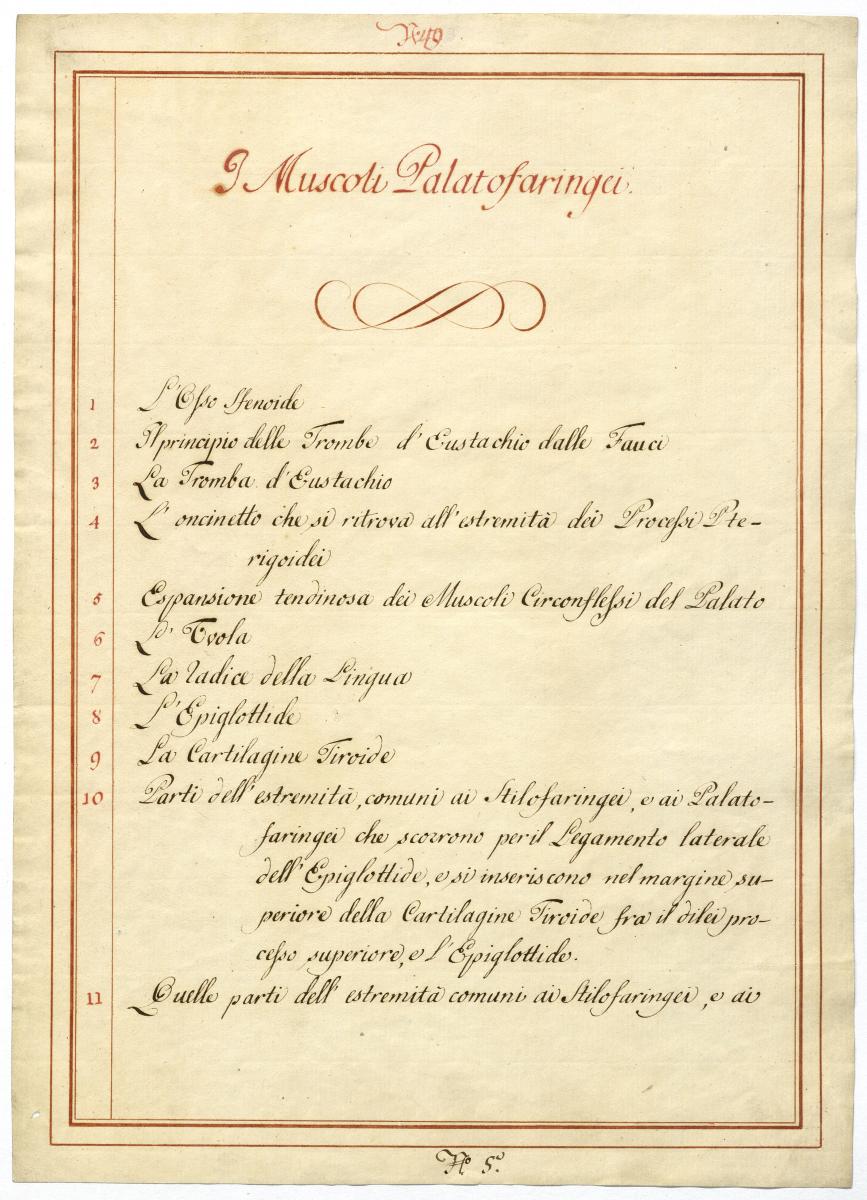 N.49
I Muscoli Palatofaringei.
1 L'Osso Sfenoide
2 Il principio delle Trombe d'Eustachio dalle Fauci
3 La Tromba d'Eustachio
4 L'oncinetto che si ritrova all'estremità dei Processi Pte-
rigoidei
5 Espansione tendinosa dei Muscoli Circonflessi del Palato
6 L'Uvola
7 La radice della Lingua
8 L'Epiglottide
9 La Cartilagine Tiroide
10 Parti dell'estremità, comuni ai Stilofaringei, e ai Palato-
faringei che scorrono per il Legamento laterale
dell'Epiglottide, e si inseriscono nel margine su-
periore della Cartilagine Tiroide fra il di lei pro-
cesso superiore, e l'Epiglottide.
11 Quelle parti dell'estremità comuni ai Stilofaringei, e ai
N.º 5.º